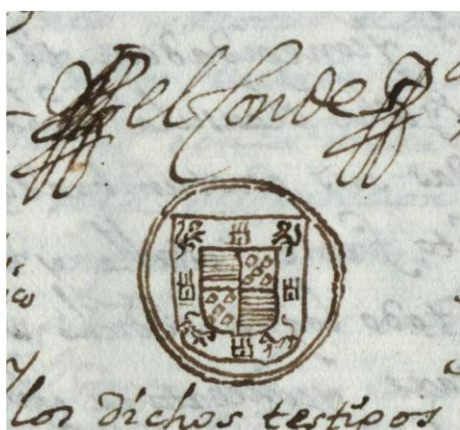 el Conde
los dichos testigos